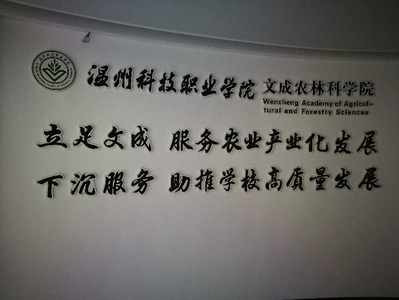 温州科技职业学院 文成农林科学院
Wencheng Academy of Agricul-
tural and Forestry Sciences
立足文成 服务农业产业化发展
下沉服务 助推学校高质量发展